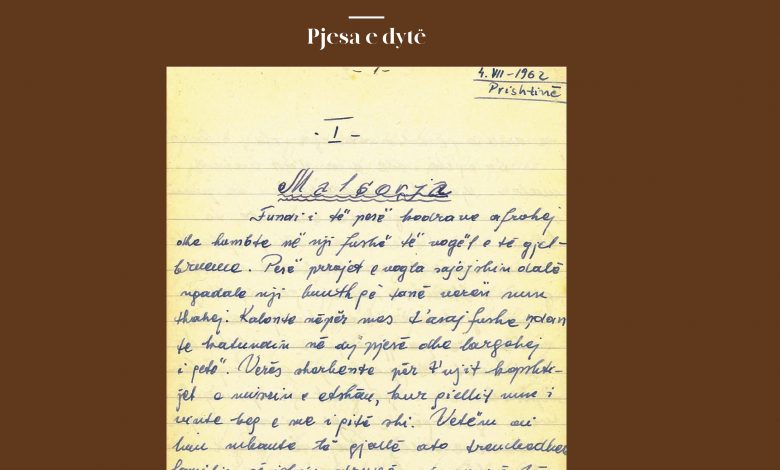 Pjesa e dytë
- 1 -
4. VII - 1962
Prishtinë
- I -
Malsorja
Fundi i të pesë kodrave afrohej
dhe humbte në nji fushë të vogël e të gjel-
brueme. Pesë prrojet e vogla sajojshin dalë
ngadale nji lum th që tanë verën nun
thahej. Kalonte nëpër mes t'asaj fushe ndan
te katundin në dy pjesë dhe largohej
i qetë. Verës sherbente për t'ujit kopshte-
jet e misrin e etshëm, kur qiellit nun i
vinte keq e me i pitë shi. Vetëm ai
lum mbante të gjallë ato